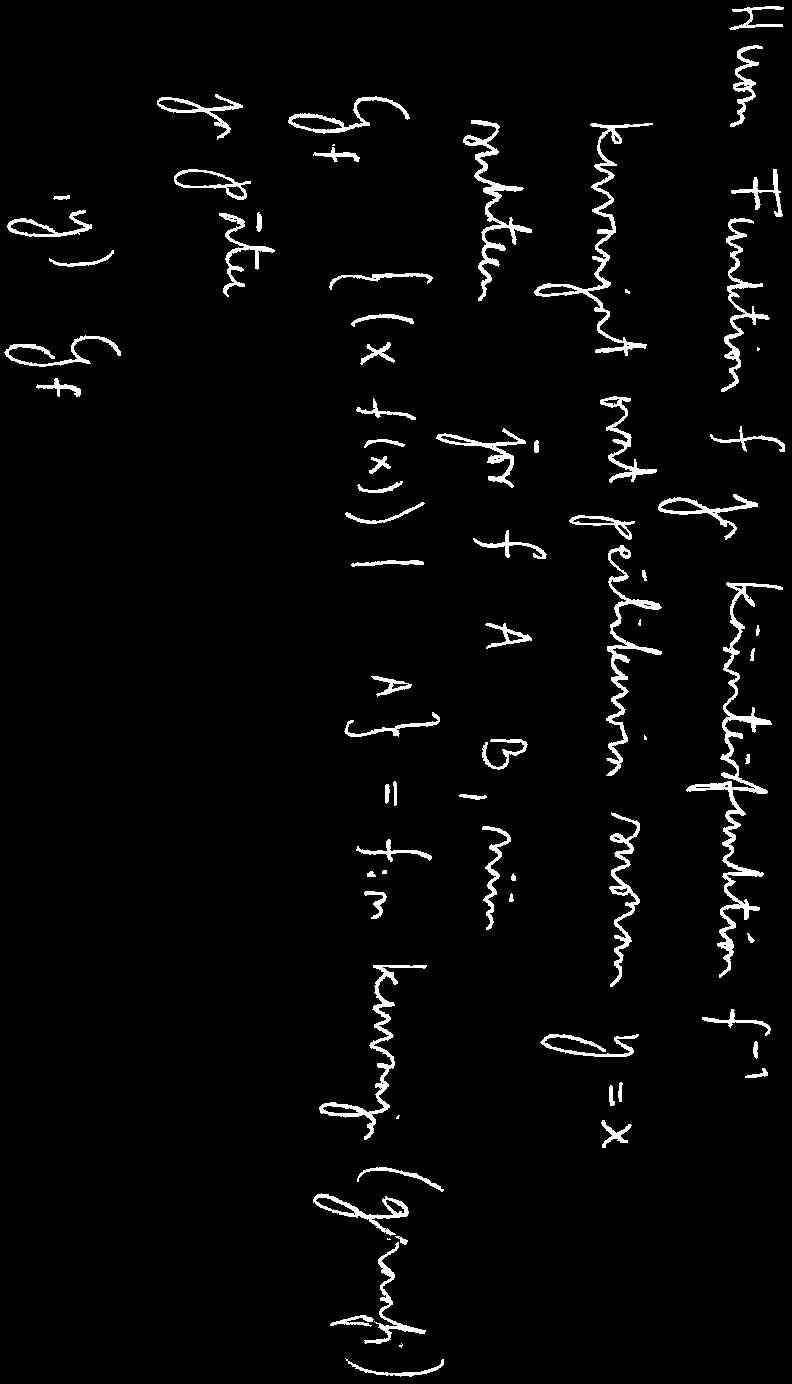 Huom Funktion f ja käänteisfunktion f⁻¹
kuvaajat ovat peilikuvia suoran y = x
suhteen jos f A B, niin
Gf {(x f(x)) | A} = f:n kuvaaja (graafi)
ja pätee
, y) Gf